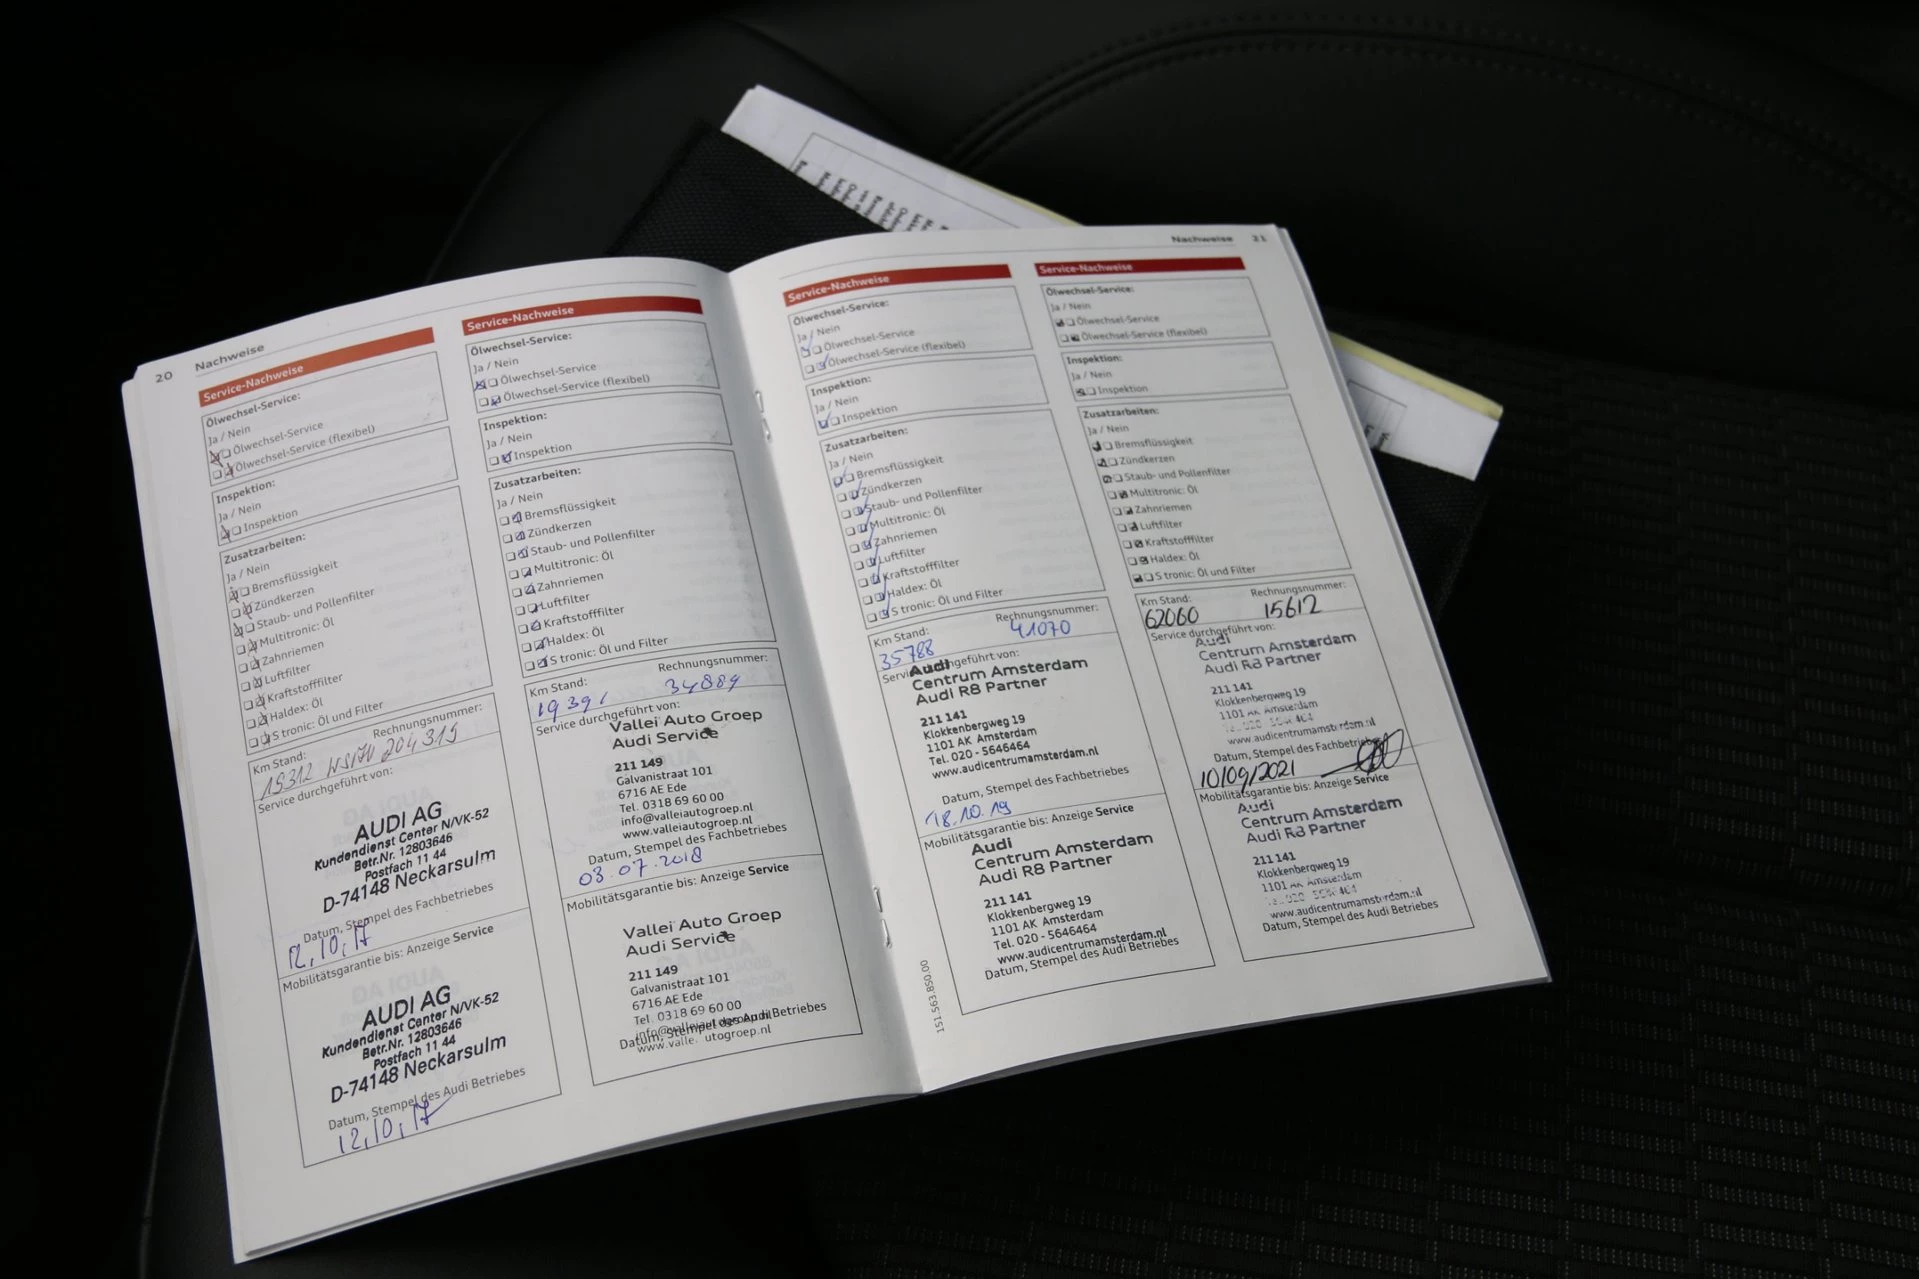 20 Nachweise
Service-Nachweise
Ölwechsel-Service:
Ja / Nein
Ölwechsel-Service
Ölwechsel-Service (flexibel)
Inspektion:
Ja / Nein
Inspektion
Zusatzarbeiten:
Ja / Nein
Bremsflüssigkeit
Zündkerzen
Staub- und Pollenfilter
Multitronic: Öl
Zahnriemen
Luftfilter
Kraftstofffilter
Haldex: Öl
S tronic: Öl und Filter
Km Stand: Rechnungsnummer:
204315
Service durchgeführt von:
AUDI AG
Kundendienst Center N/VK-52
Betr.Nr. 12803646
Postfach 11 44
D-74148 Neckarsulm
Datum, Stempel des Fachbetriebes
12,10,17
Mobilitätsgarantie bis: Anzeige Service
AUDI AG
Kundendienst Center N/VK-52
Betr.Nr. 12803646
Postfach 11 44
D-74148 Neckarsulm
Datum, Stempel des Audi Betriebes
12,10,17
Service-Nachweise
Ölwechsel-Service:
Ja / Nein
Ölwechsel-Service
Ölwechsel-Service (flexibel)
Inspektion:
Ja / Nein
Inspektion
Zusatzarbeiten:
Ja / Nein
Bremsflüssigkeit
Zündkerzen
Staub- und Pollenfilter
Multitronic: Öl
Zahnriemen
Luftfilter
Kraftstofffilter
Haldex: Öl
S tronic: Öl und Filter
Km Stand: Rechnungsnummer:
34889
Service durchgeführt von:
Vallei Auto Groep
Audi Service
211 149
Galvanistraat 101
6716 AE Ede
Tel. 0318 69 60 00
info@valleiautogroep.nl
www.valleiautogroep.nl
Datum, Stempel des Fachbetriebes
03.07.2018
Mobilitätsgarantie bis: Anzeige Service
Vallei Auto Groep
Audi Service
211 149
Galvanistraat 101
6716 AE Ede
Tel. 0318 69 60 00
info@valleiautogroep.nl
Datum, Stempel des Audi Betriebes
Nachweise 21
Service-Nachweise
Ölwechsel-Service:
Ja / Nein
Ölwechsel-Service
Ölwechsel-Service (flexibel)
Inspektion:
Ja / Nein
Inspektion
Zusatzarbeiten:
Ja / Nein
Bremsflüssigkeit
Zündkerzen
Staub- und Pollenfilter
Multitronic: Öl
Zahnriemen
Luftfilter
Kraftstofffilter
Haldex: Öl
S tronic: Öl und Filter
Km Stand: Rechnungsnummer:
35788 41070
Service durchgeführt von:
Audi
Centrum Amsterdam
Audi R8 Partner
211 141
Klokkenbergweg 19
1101 AK Amsterdam
Tel. 020 - 5646464
www.audicentrumamsterdam.nl
Datum, Stempel des Fachbetriebes
18.10.19
Mobilitätsgarantie bis: Anzeige Service
Audi
Centrum Amsterdam
Audi R8 Partner
211 141
Klokkenbergweg 19
1101 AK Amsterdam
Tel. 020 - 5646464
www.audicentrumamsterdam.nl
Datum, Stempel des Audi Betriebes
151.563.850.00
Service-Nachweise
Ölwechsel-Service:
Ja / Nein
Ölwechsel-Service
Ölwechsel-Service (flexibel)
Inspektion:
Ja / Nein
Inspektion
Zusatzarbeiten:
Ja / Nein
Bremsflüssigkeit
Zündkerzen
Staub- und Pollenfilter
Multitronic: Öl
Zahnriemen
Luftfilter
Kraftstofffilter
Haldex: Öl
S tronic: Öl und Filter
Km Stand: Rechnungsnummer:
62060 15612
Service durchgeführt von:
Audi
Centrum Amsterdam
Audi R8 Partner
211 141
Klokkenbergweg 19
1101 AK Amsterdam
www.audicentrumamsterdam.nl
Datum, Stempel des Fachbetriebes
10/09/2021
Mobilitätsgarantie bis: Anzeige Service
Audi
Centrum Amsterdam
Audi R8 Partner
211 141
Klokkenbergweg 19
1101 AK Amsterdam
www.audicentrumamsterdam.nl
Datum, Stempel des Audi Betriebes